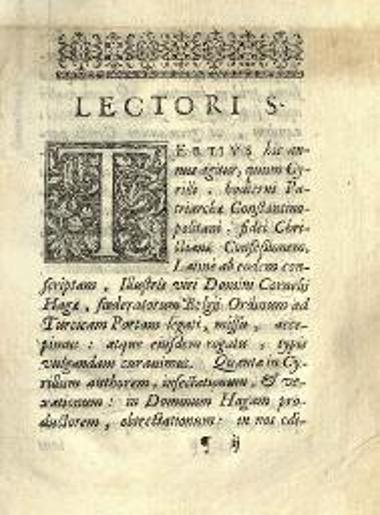 LECTORI S.
TERTIVS hic an-
nus agitur, quum Cy-
rilli, hodierni Pa-
triarchæ Constantino-
politani, fidei Chri-
stianæ Confessionem,
Latinè ab eodem con-
scriptam, Illustris viri Domini Cornelij
Hagæ, fœderatorum Belgij Ordinum ad
Turcicam Portam legati, missu, acce-
pimus: atque ejusdem rogatu, typis
vulgandam curavimus. Quantæ in Cy-
rillum authorem, insectationum, & ve-
xationum: in Dominum Hagam pro-
ductorem, obtrectationum: in nos edi-
¶ ij